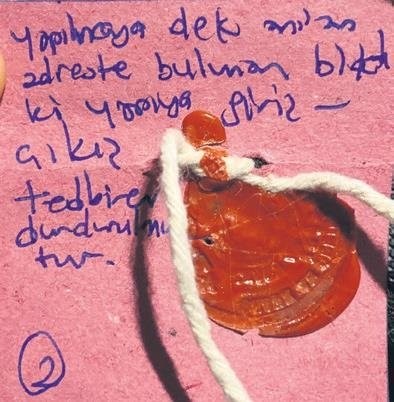 yapılmaya dek anılan
adreste bulunan blok
ki yapıya giriş –
çıkış
tedbiren
durdurulmuş
tur.
2